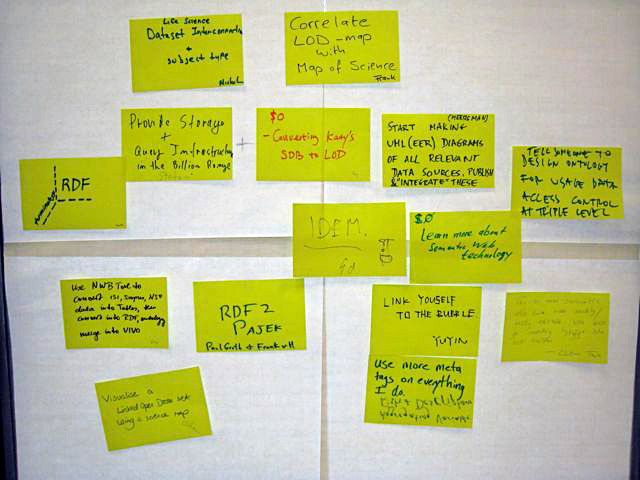 Life Science
Dataset Interconnection
+
subject type
Michel
Correlate
LOD-map
with
Map of Science
Frank
Provide Storage
+
Query Infrastructure
in the Billion Range
$0
- Converting Katy's
SDB to LOD
(MEERSMAN)
START MAKING
UML(EER) DIAGRAMS
OF ALL RELEVANT
DATA SOURCES, PUBLISH
& "INTEGRATE" THESE
TELL SOMEONE TO
DESIGN ONTOLOGY
FOR USAGE DATA
ACCESS CONTROL
AT TRIPLE LEVEL
RDF
IDEM.
$0
Learn more about
Semantic Web
technology
Use NWB Tool to
convert ISI, Scopus, NSF
data into Tables, then
convert into RDF, ontology,
merge into VIVO
RDF2
PAJEK
Paul Groth & Frank vH
LINK YOUSELF
TO THE BUBBLE.
YUYIN
Use more meta
tags on everything
I do.
Visualise a
Linked Open Data set
using a science map